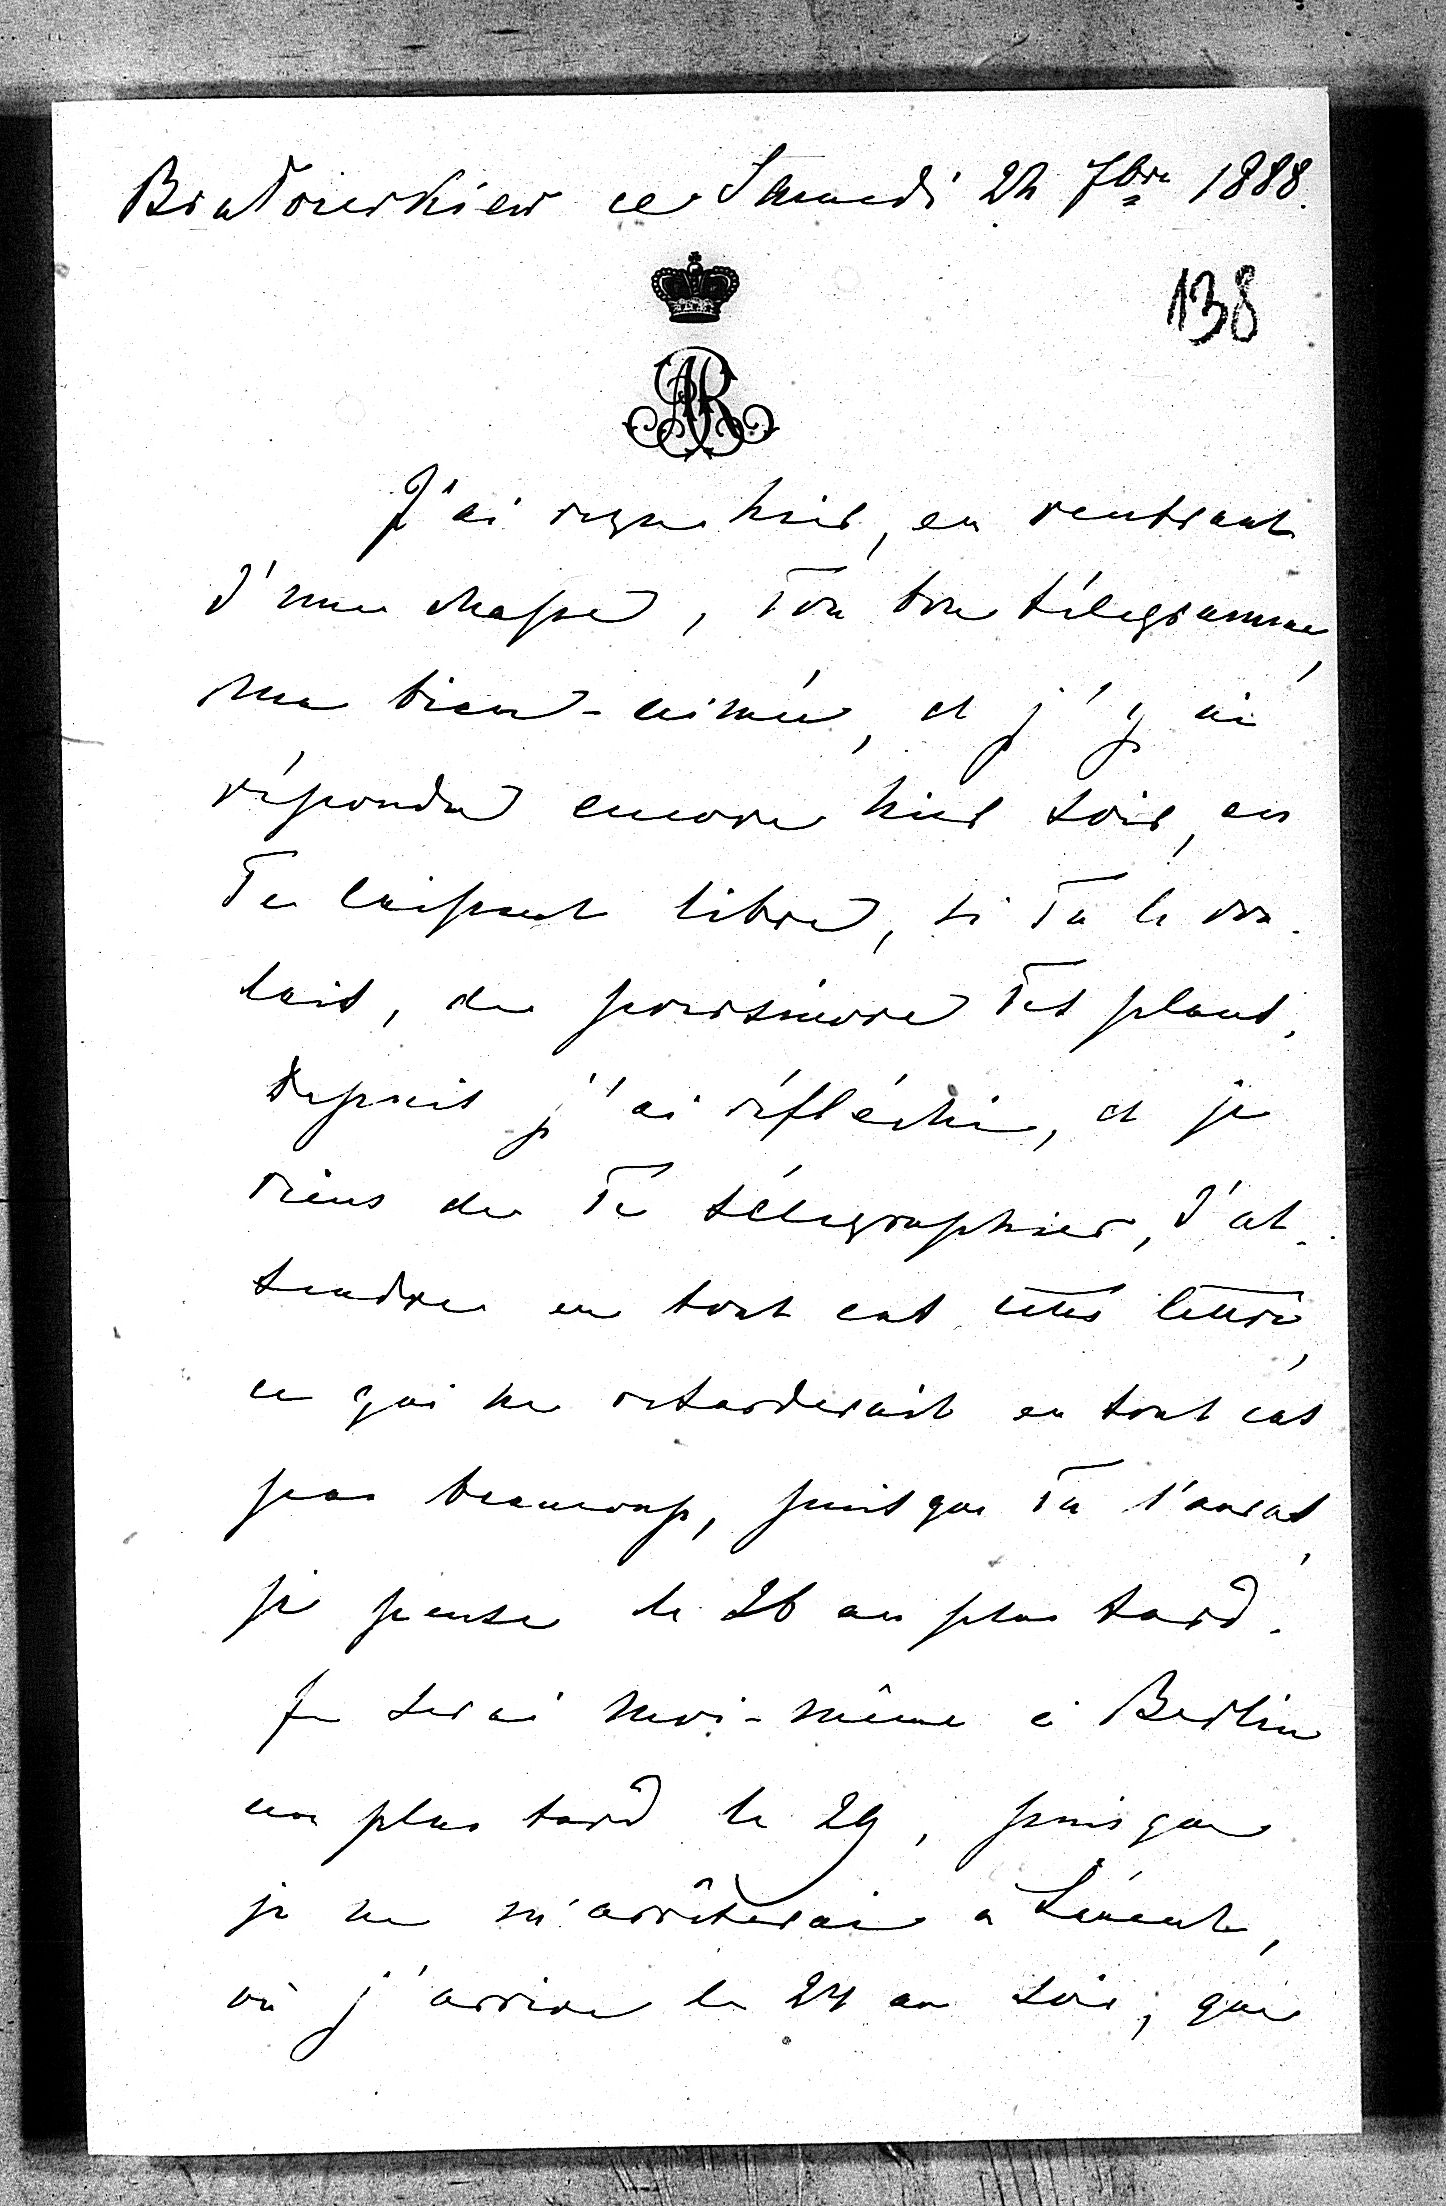 ce Samedi 22 7bre 1888.
138
AR
J'ai reçu hier, en rentrant
d'une chasse, Ton bon télégramme,
ma bien-aimée, et j'y ai
répondu encore hier soir, en
Te laissant libre, si Tu le vou-
lais, de poursuivre Tes plans.
Depuis j'ai réfléchi, et je
viens de Te télégraphier, d'at-
tendre en tout cas cette lettre,
ce qui ne retarderait en tout cas
pas beaucoup, puisque Tu l'auras,
je pense le 26 au plus tard.
Je serai moi-même à Berlin
au plus tard le 29, puisque
je ne m'arrêterai à
où j'arrive le 24 au soir, que